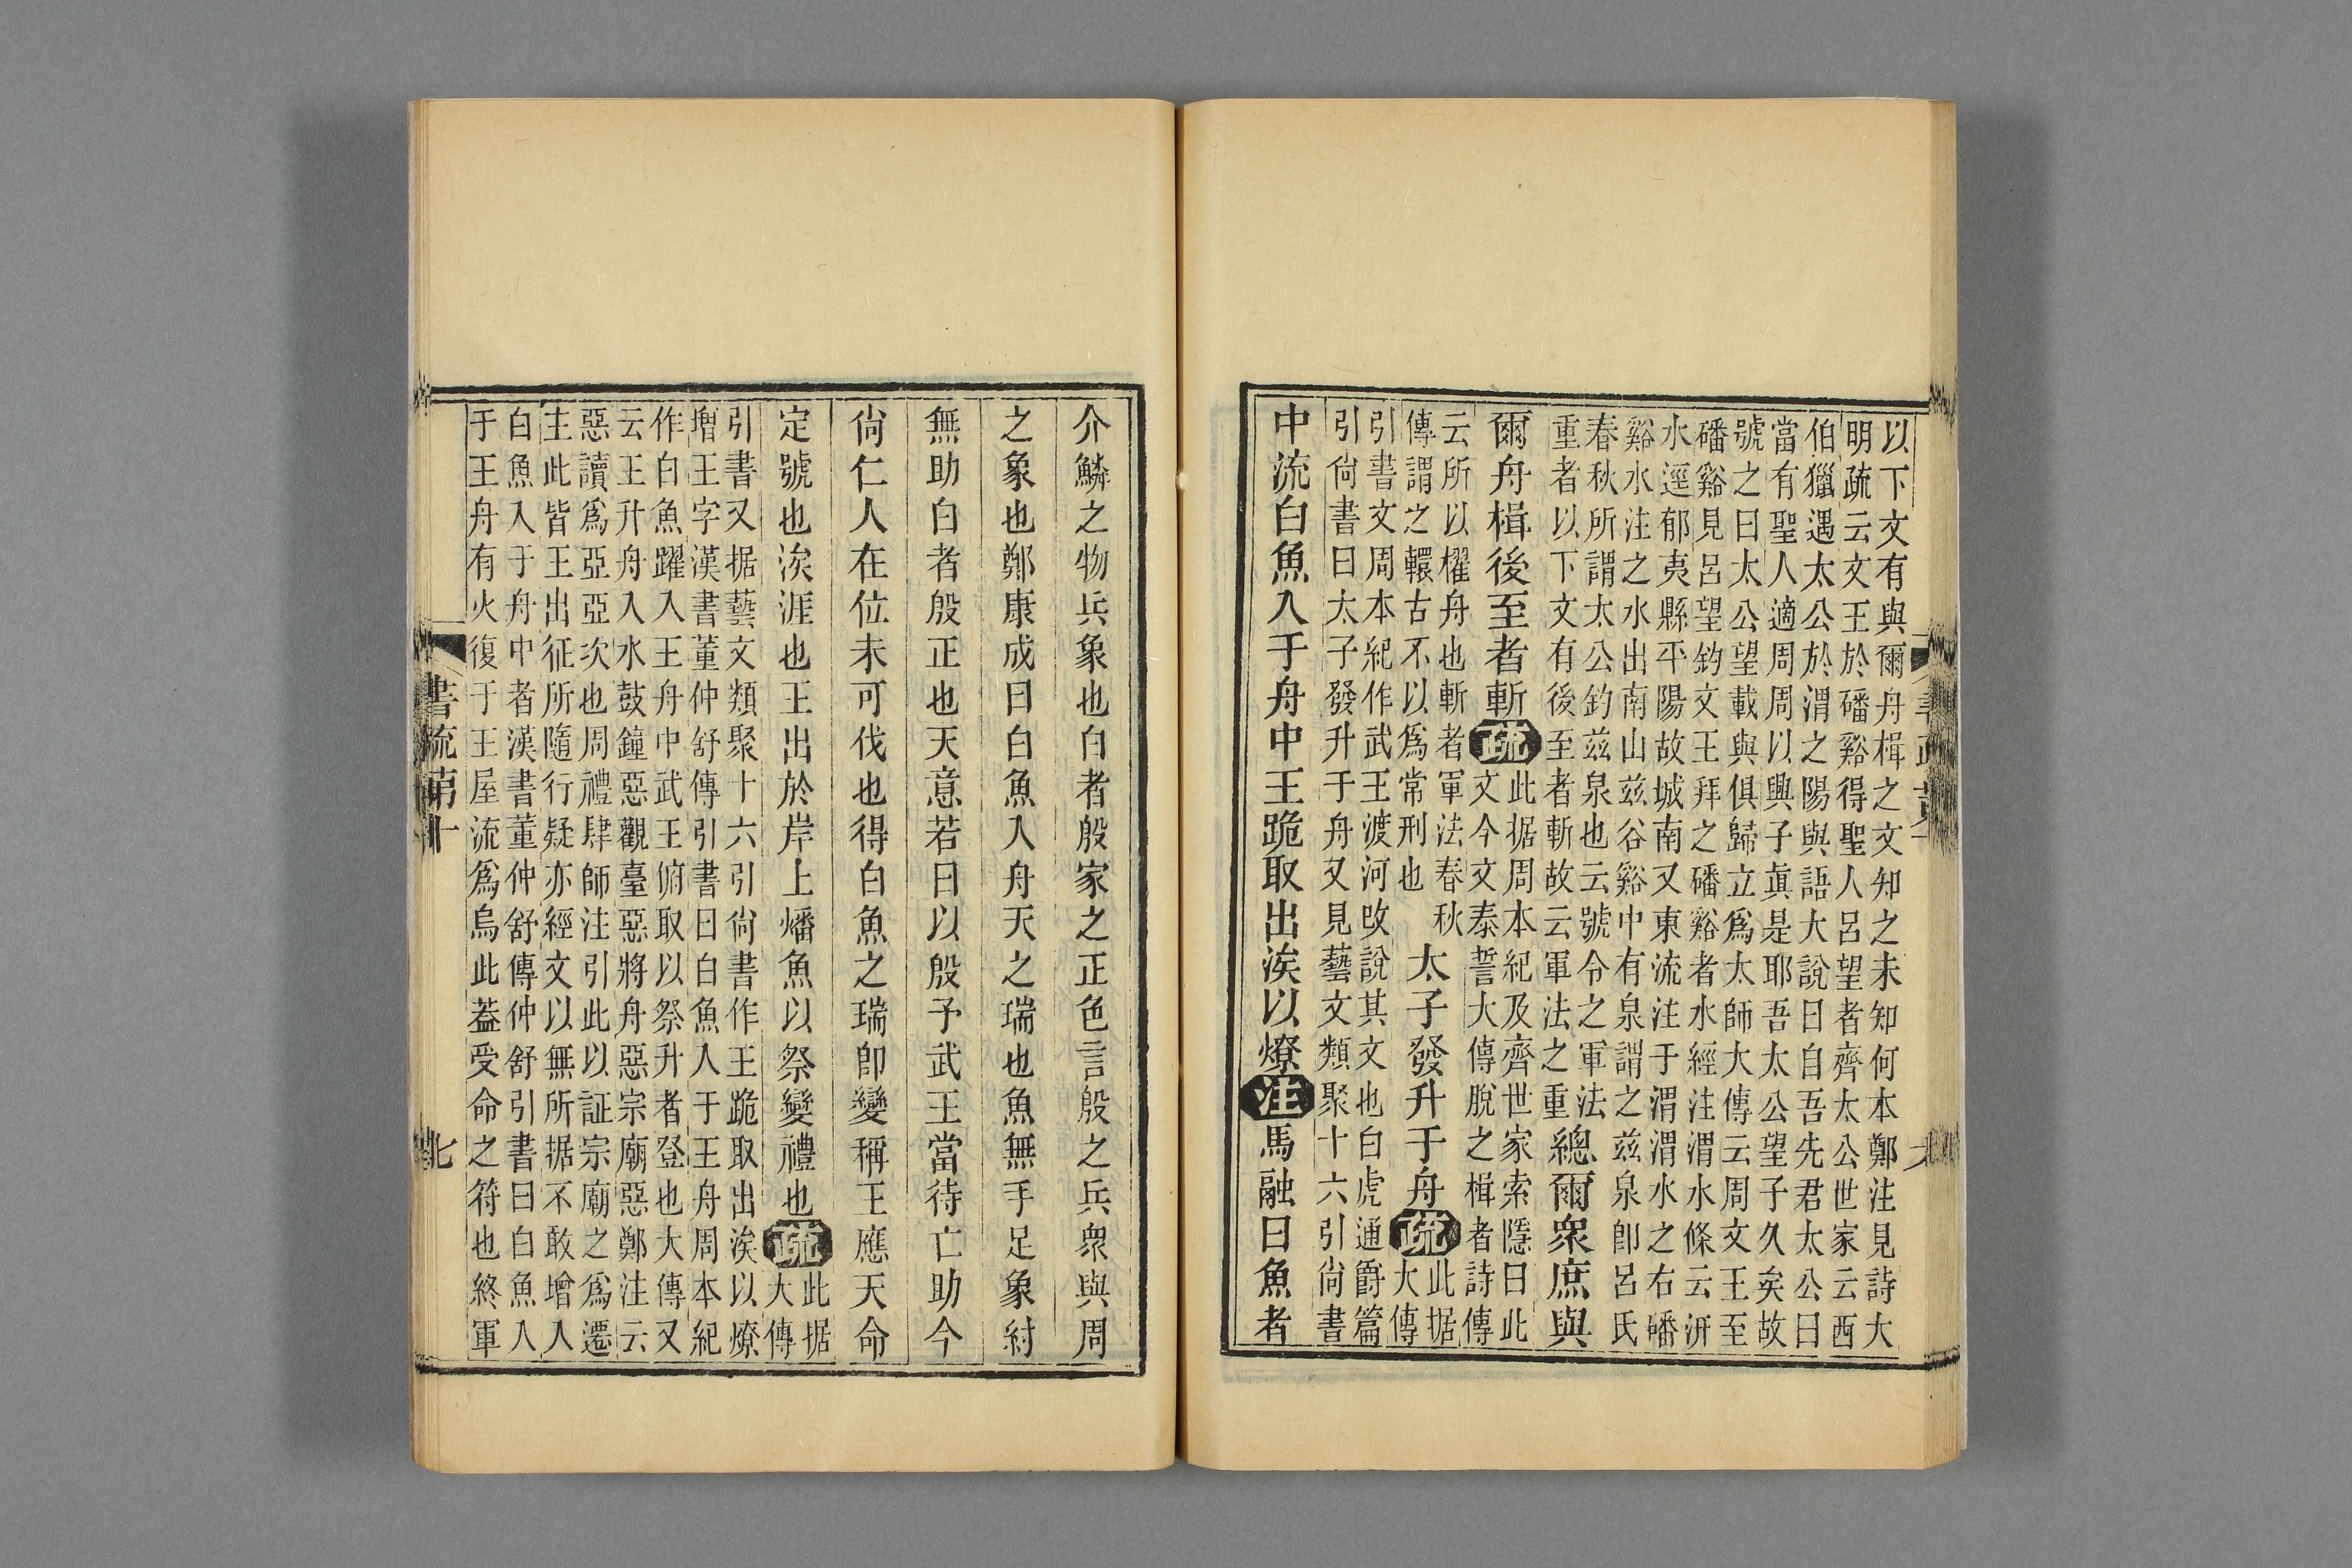 以下文有與爾舟楫之文知之未知何本鄭注見詩大
明疏云文王於磻谿得聖人呂望者齊太公世家云西
伯獵遇太公於渭之陽與語大說曰自吾先君太公曰
當有聖人適周周以興子眞是耶吾太公望子久矣故
號之曰太公望載與俱歸立爲太師大傳云周文王至
磻谿見呂望釣文王拜之磻谿者水經注渭水條云汧
水逕郁夷縣平陽故城南又東流注于渭渭水之右磻
谿水注之水出南山兹谷谿中有泉謂之兹泉卽呂氏
春秋所謂太公釣兹泉也云號令之軍法
重者以下文有後至者斬故云軍法之重
總爾衆庶與
爾舟楫後至者斬疏
此据周本紀及齊世家索隱曰此
文今文泰誓大傳脫之楫者詩傳
云所以櫂舟也斬者軍法春秋
傳謂之轘古不以爲常刑也
太子發升于舟疏
此据
大傳
引書文周本紀作武王渡河攺說其文也白虎通爵篇
引尙書曰太子發升于舟又見藝文類聚十六引尙書
中流白魚入于舟中王跪取出涘以燎注馬融曰魚者
介鱗之物兵象也白者殷家之正色言殷之兵衆與周
之象也鄭康成曰白魚入舟天之瑞也魚無手足象紂
無助白者殷正也天意若曰以殷予武王當待亡助今
尙仁人在位未可伐也得白魚之瑞卽變稱王應天命
定號也涘涯也王出於岸上燔魚以祭變禮也疏
此据
大傳
引書又据藝文類聚十六引尙書作王跪取出涘以燎
增王字漢書董仲舒傳引書曰白魚入于王舟周本紀
作白魚躍入王舟中武王俯取以祭升者登也大傳又
云王升舟入水鼓鐘惡觀臺惡將舟惡宗廟惡鄭注云
惡讀爲亞亞次也周禮肆師注引此以証宗廟之爲遷
主此皆王出征所隨行疑亦經文以無所据不敢增入
白魚入于舟中者漢書董仲舒傳仲舒引書曰白魚入
于王舟有火復于王屋流爲烏此葢受命之符也終軍
書疏第十